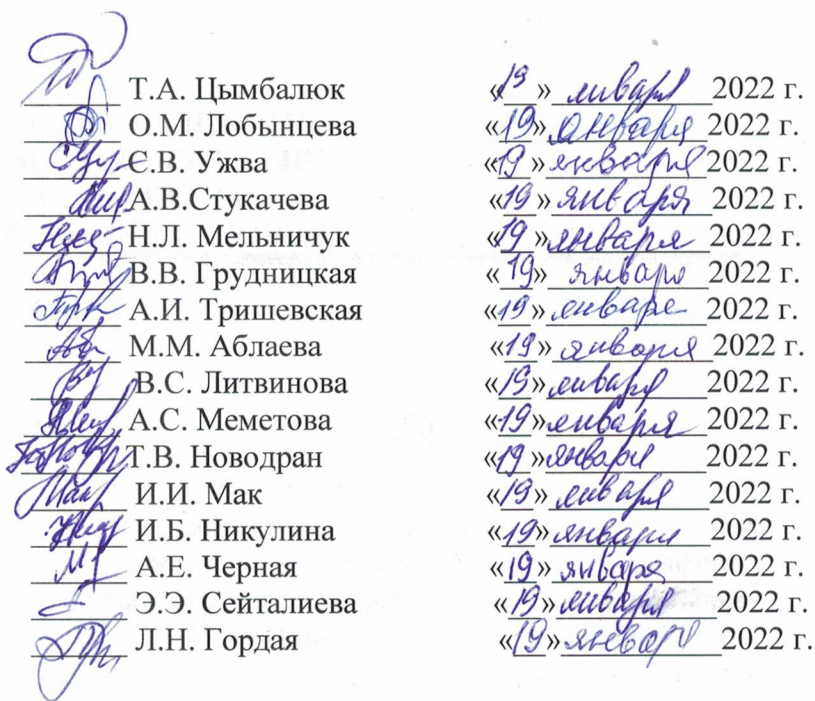 Т.А. Цымбалюк «19» января 2022 г.
О.М. Лобынцева «19» января 2022 г.
Є.В. Ужва «19» января 2022 г.
А.В.Стукачева «19» января 2022 г.
Н.Л. Мельничук «19» января 2022 г.
В.В. Грудницкая «19» января 2022 г.
А.И. Тришевская «19» января 2022 г.
М.М. Аблаева «19» января 2022 г.
В.С. Литвинова «19» января 2022 г.
А.С. Меметова «19» января 2022 г.
Т.В. Новодран «19» января 2022 г.
И.И. Мак «19» января 2022 г.
И.Б. Никулина «19» января 2022 г.
А.Е. Черная «19» января 2022 г.
Э.Э. Сейталиева «19» января 2022 г.
Л.Н. Гордая «19» января 2022 г.